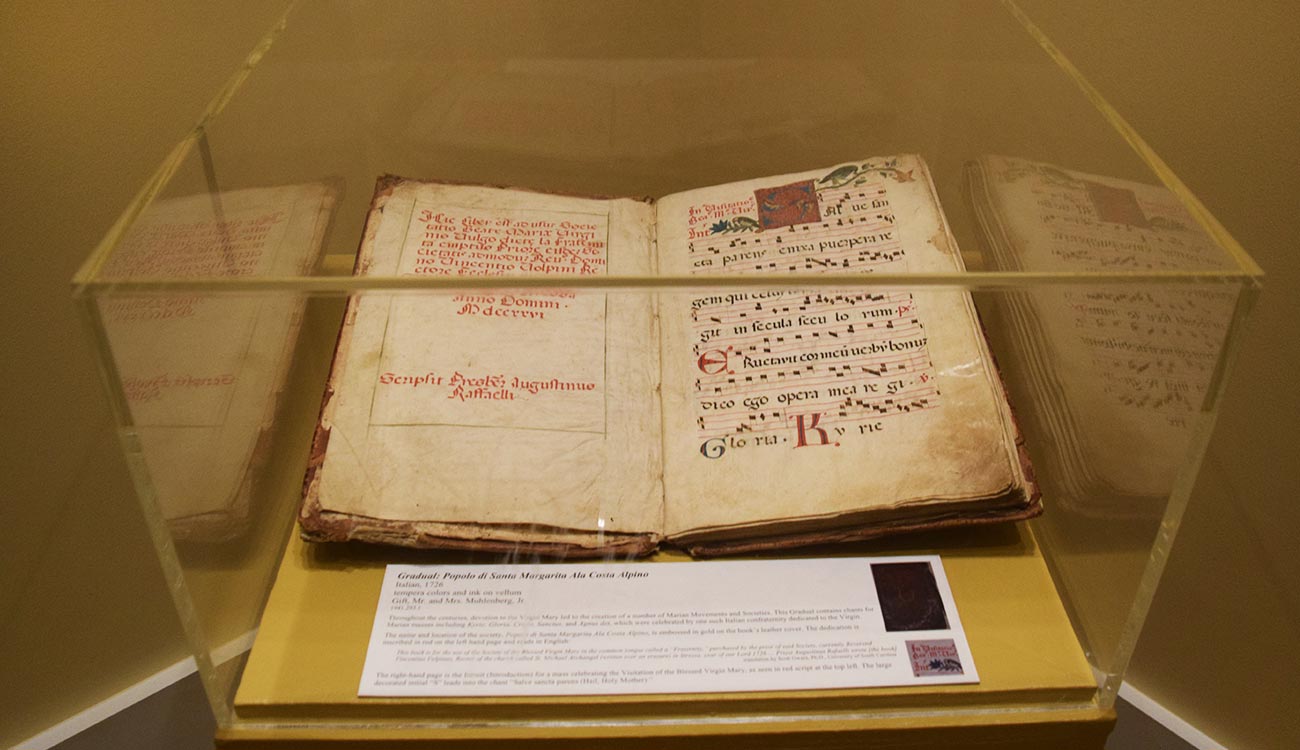 Hic liber est ad usuz Socie
tatis Beate Mariæ Virgi
nis Vulgo dicte la Fratern
Societatis admoduz Reuᵈ Domi
no Vincentio Volpini Re
ctore Eccles
Anno Domini
MDCCXXVI
Scripsit Augustinus
Raffaelli.
In Visitatio
Int
ue san
cta parens enixa puerpera re
gem qui
git in secula secu lo rum. ps.
Eructavit cor meū verbū bonuz
dico ego opera mea re gi. v.
Glo ria. Ky rie
Gradual: Popolo di Santa Margarita Ala Costa Alpino
Italian, 1726
tempera colors and ink on vellum
Gift, Mr. and Mrs. Muhlenberg, Jr.
Throughout the centuries, devotion to the Virgin Mary led to the creation of a number of Marian Movements and Societies. This Gradual contains chants for
Marian masses including Kyrie, Gloria, Credo, Sanctus, and Agnus dei, which were celebrated by one such Italian confraternity dedicated to the Virgin.
The name and location of the society, Popolo di Santa Margarita Ala Costa Alpino, is embossed in gold on the book's leather cover. The dedication is
inscribed in red on the left hand page and reads in English:
This book is for the use of the Society of the Blessed Virgin Mary in the common tongue called a "Fraternity," purchased by the prior of said Society, currently Reverend
Vincentius Volpinus, Rector of the church called St. Michael Archangel year of our Lord 1726 . . . Priest Augustinus Rafaelli wrote [the book]
translation by Scott Gwara, Ph.D., University of South Carolina
The right-hand page is the Introit (Introduction) for a mass celebrating the Visitation of the Blessed Virgin Mary, as seen in red script at the top left. The large
decorated initial "S" leads into the chant "Salve sancta parens (Hail, Holy Mother)"